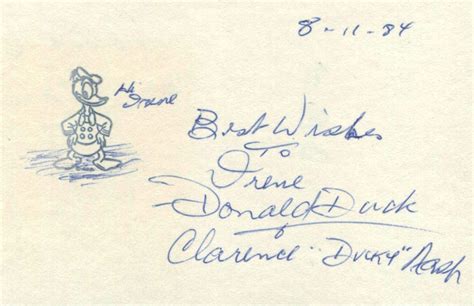 8-11-84
Hi
Irene
Best Wishes
To
Irene
Donald Duck
&
Clarence "Ducky" Nash